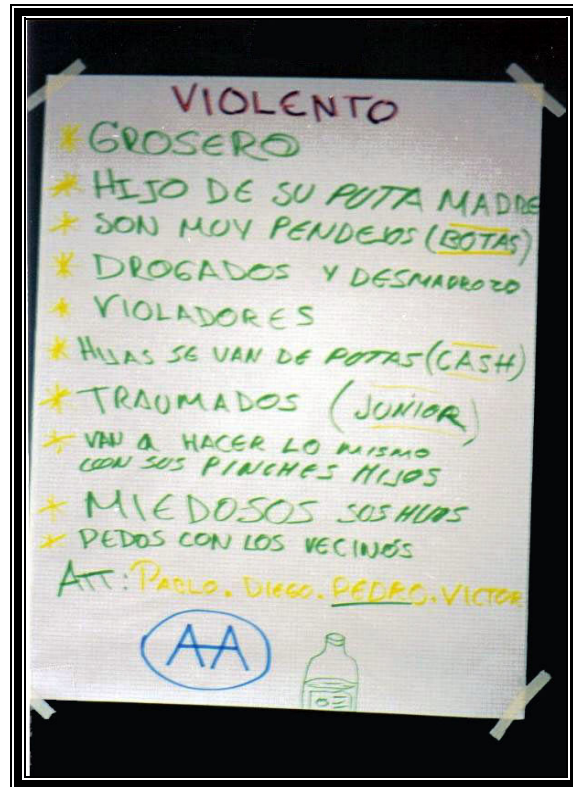 VIOLENTO
* GROSERO
* HIJO DE SU PUTA MADRE
* SON MUY PENDEJOS (BOTAS)
* DROGADOS Y DESMADROZO
* VIOLADORES
* HIJAS SE VAN DE PUTAS (CASH)
* TRAUMADOS (JUNIOR)
* VAN A HACER LO MISMO
CON SUS PINCHES HIJOS
* MIEDOSOS SUS HIJOS
* PEDOS CON LOS VECINOS
ATT: PABLO. DIEGO. PEDRO. VICTOR
AA